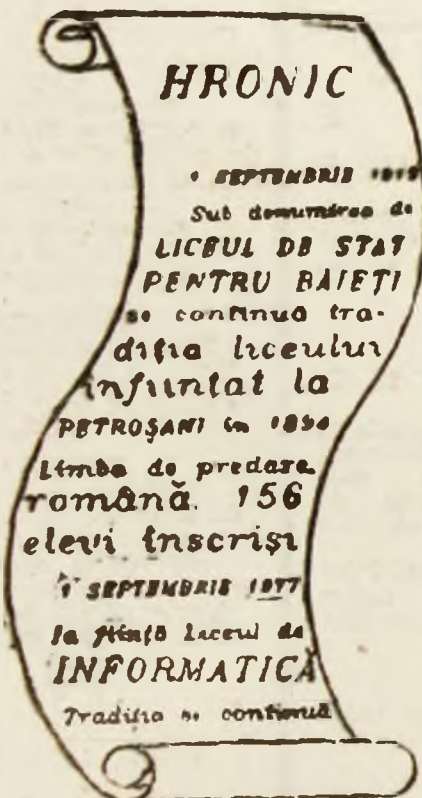 HRONIC
1 SEPTEMBRIE 1919
Sub denumirea de
LICEUL DE STAT
PENTRU BAIEȚI
se continuă tra-
diția liceului
înființat la
PETROȘANI în
Limba de predare
română. 156
elevi înscriși
1 SEPTEMBRIE 1977
Ia ființă Liceul de
INFORMATICĂ
Tradiția se continuă